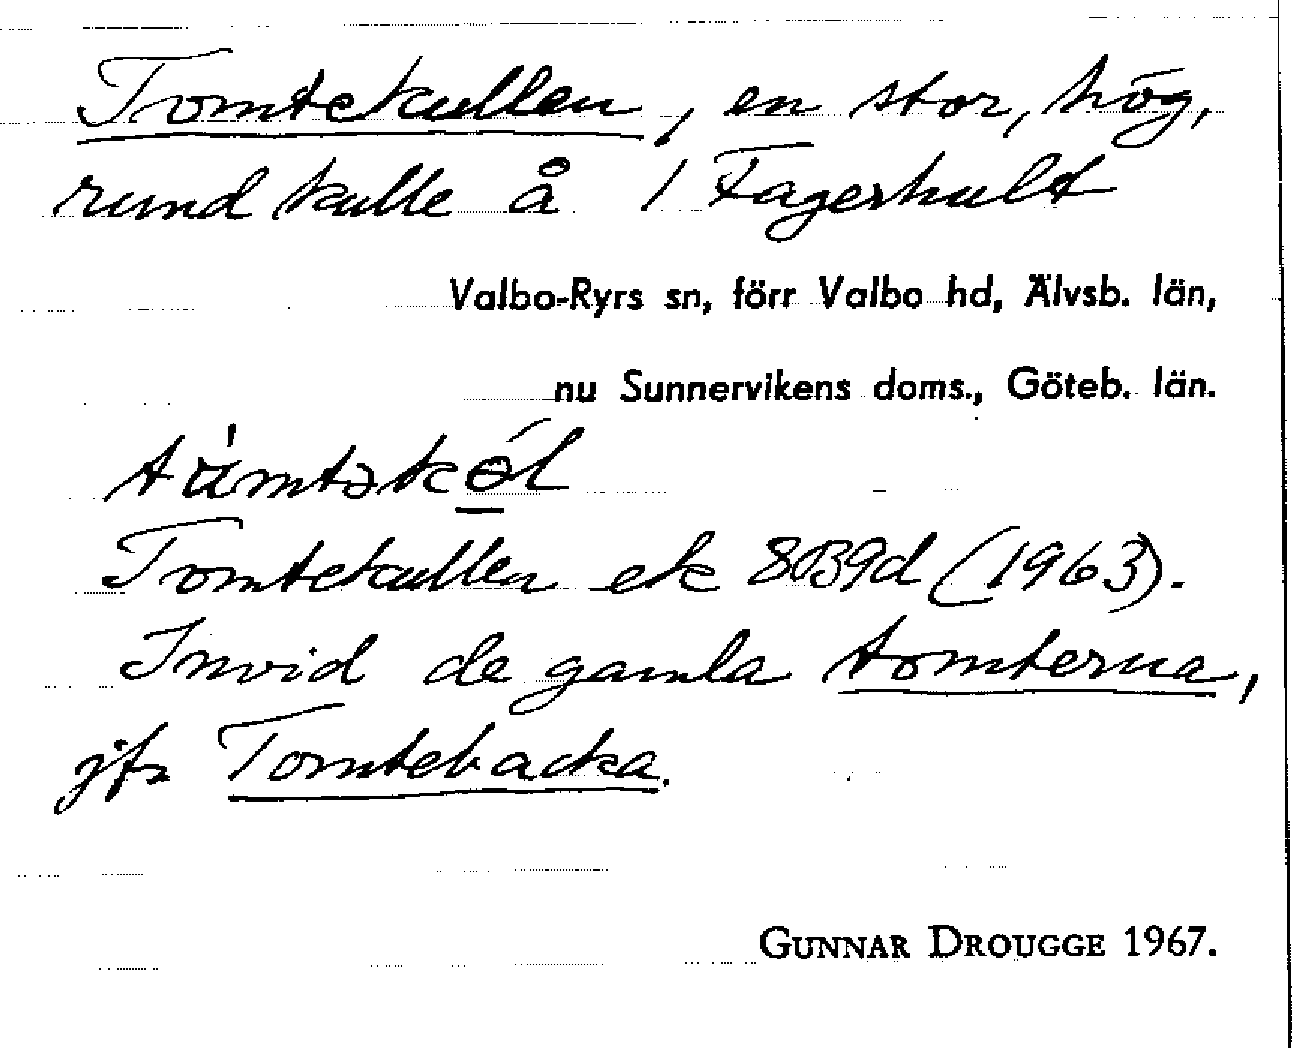 Tomtekullen, en stor, hög,
rund kulle å 1 Fagerhult
Valbo-Ryrs sn, förr Valbo hd, Älvsb. län,
nu Sunnervikens doms., Göteb. län.
Tomtekullen ek 8B9d (1963).
Invid de gamla tomterna,
jfr Tomtebacka.
GUNNAR DROUGGE 1967.